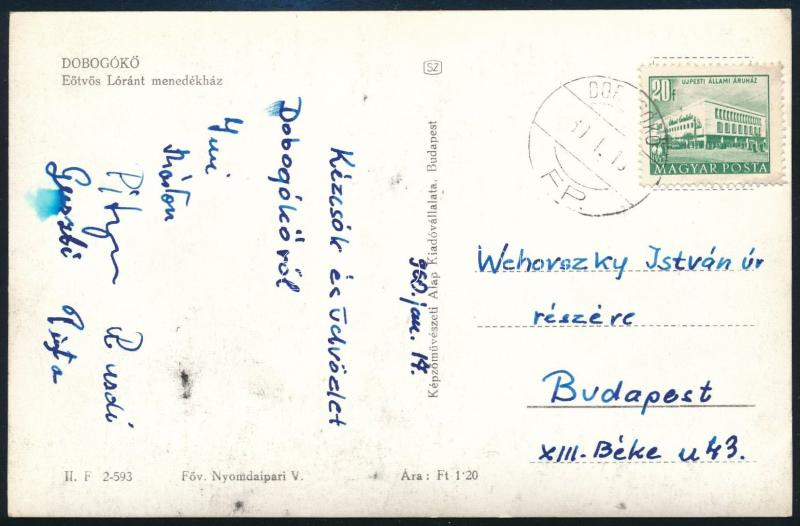 DOBOGÓKŐ
Eötvös Lóránt menedékház
SZ
Képzőművészeti Alap Kiadóvállalata, Budapest
960. jan. 17.
Kézcsók és üdvözlet
Dobogókőről
Imi
Márton
Rudi
Pista
FP.
UJPESTI ÁLLAMI ÁRUHÁZ
20f
MAGYAR POSTA
Wehovszky István úr
részére
Budapest
XIII. Béke u 43.
II. F 2-593
Főv. Nyomdaipari V.
Ára : Ft 1·20